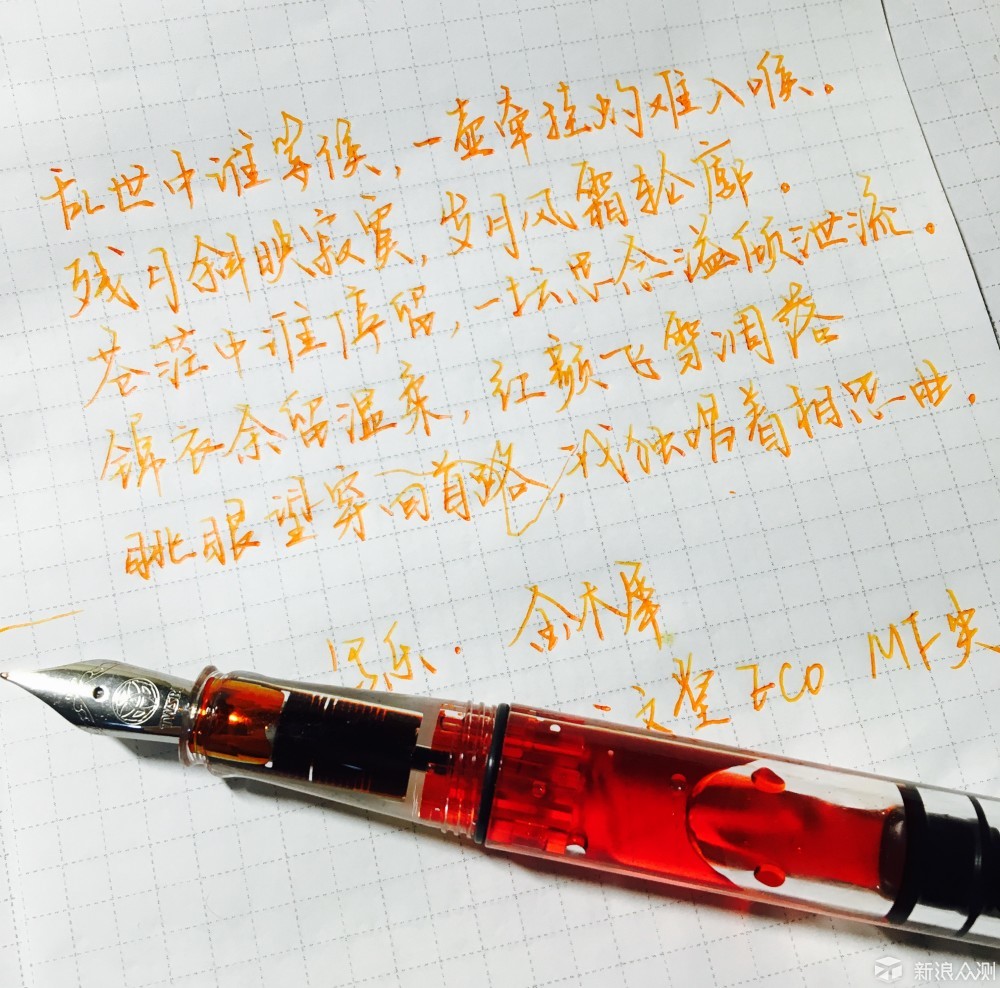 乱世中谁等候，一壶牵挂灼难入喉。
残月斜映寂寞，岁月风霜轮廓。
苍茫中谁停留，一坛思念溢倾泄流。
锦衣余留温柔，红颜飞雪凋落
眺眼望穿回首略，我独唱着相思曲。
写乐·金木犀
文堂ECO MF尖
新浪众测